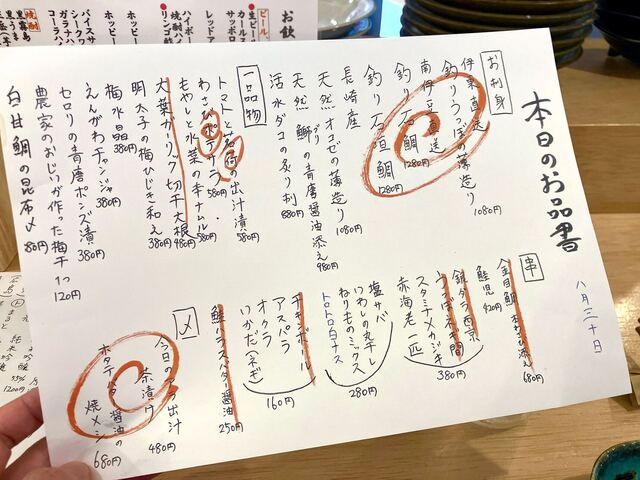 本日のお品書
八月三十日
お刺身
伊東直送
釣りうつぼの薄造り 1080円
南伊豆直送
釣り石鯛 1280円
釣り石垣鯛 1280円
長崎産
天然 オコゼの薄造り 1080円
天然 鰤の青唐醤油添え 980円
ブリ
活水ダコの炙り刺 880円
一品物
トマトと茗荷の出汁漬 580円
わさびポテサラ 580円
もやしと水菜の辛ナムル 580円
大葉ガーリック切干大根 480円
明太子の梅ひじき和え 380円
梅水晶 380円
えんがわチャンジャ 380円
セロリの青唐ポンズ漬 380円
農家のおじいが作った梅干 1つ 120円
白甘鯛の昆布〆 80円
串
金目鯛 680円
鮭児 420円
銀ダラ西京
スタミナメカジキ
赤海老一匹
380円
塩サバ
いわしの丸干し
ねりものミックス
トロトロ白ナス
280円
チキンボール
アスパラ
オクラ
いかだ(ネギ)
160円
鮭ハラスバター醤油 250円
〆
今日のアラ出汁
茶漬け 480円
ホタテバター醤油の
焼メシ 680円
お飲
ビール
生ビール
カールス
サッポロ
レッドア
ハイボー
焼酎ハイ
リンゴ酢
ホッピー
ホッピー
バイスサ
シークワ
ガラナハ
コーヒー
焼酎
黒霧島